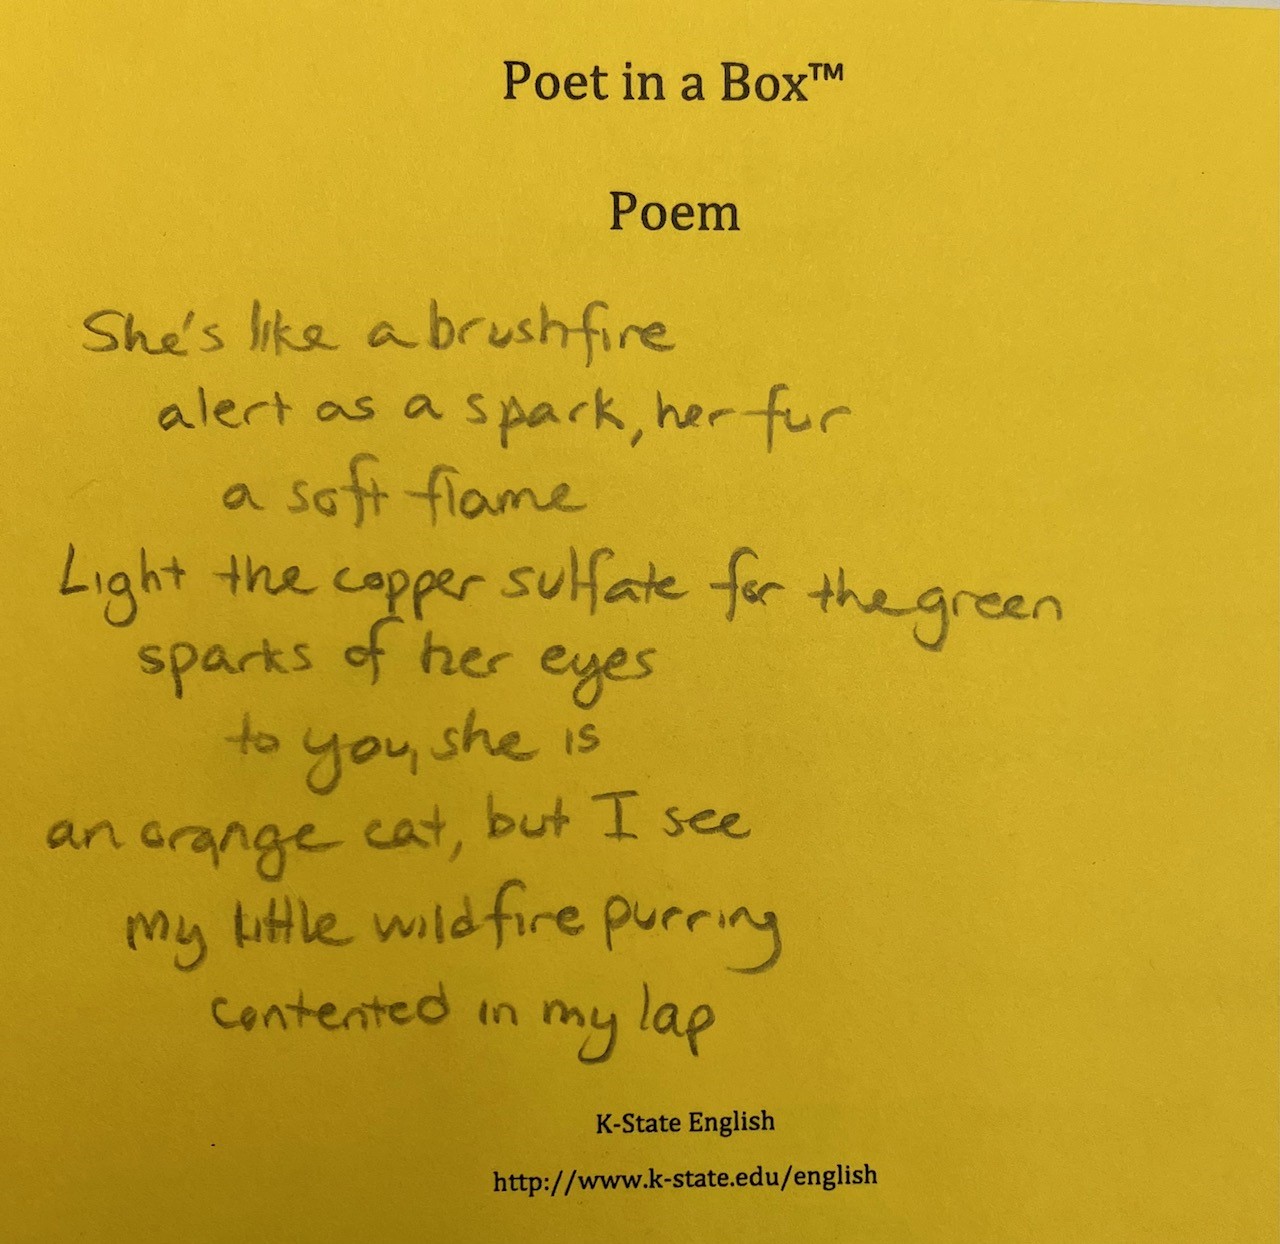 Poet in a Box™
Poem
She's like a brushfire
alert as a spark, her fur
a soft flame
Light the copper sulfate for the green
sparks of her eyes
to you, she is
an orange cat, but I see
my little wildfire purring
contented in my lap
K-State English
http://www.k-state.edu/english